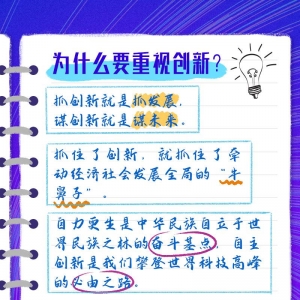 为什么要重视创新？
抓创新就是抓发展，
谋创新就是谋未来。
抓住了创新，就抓住了牵
动经济社会发展全局的“牛
鼻子”。
自力更生是中华民族自立于世
界民族之林的奋斗基点，自主
创新是我们攀登世界科技高峰
的必由之路。